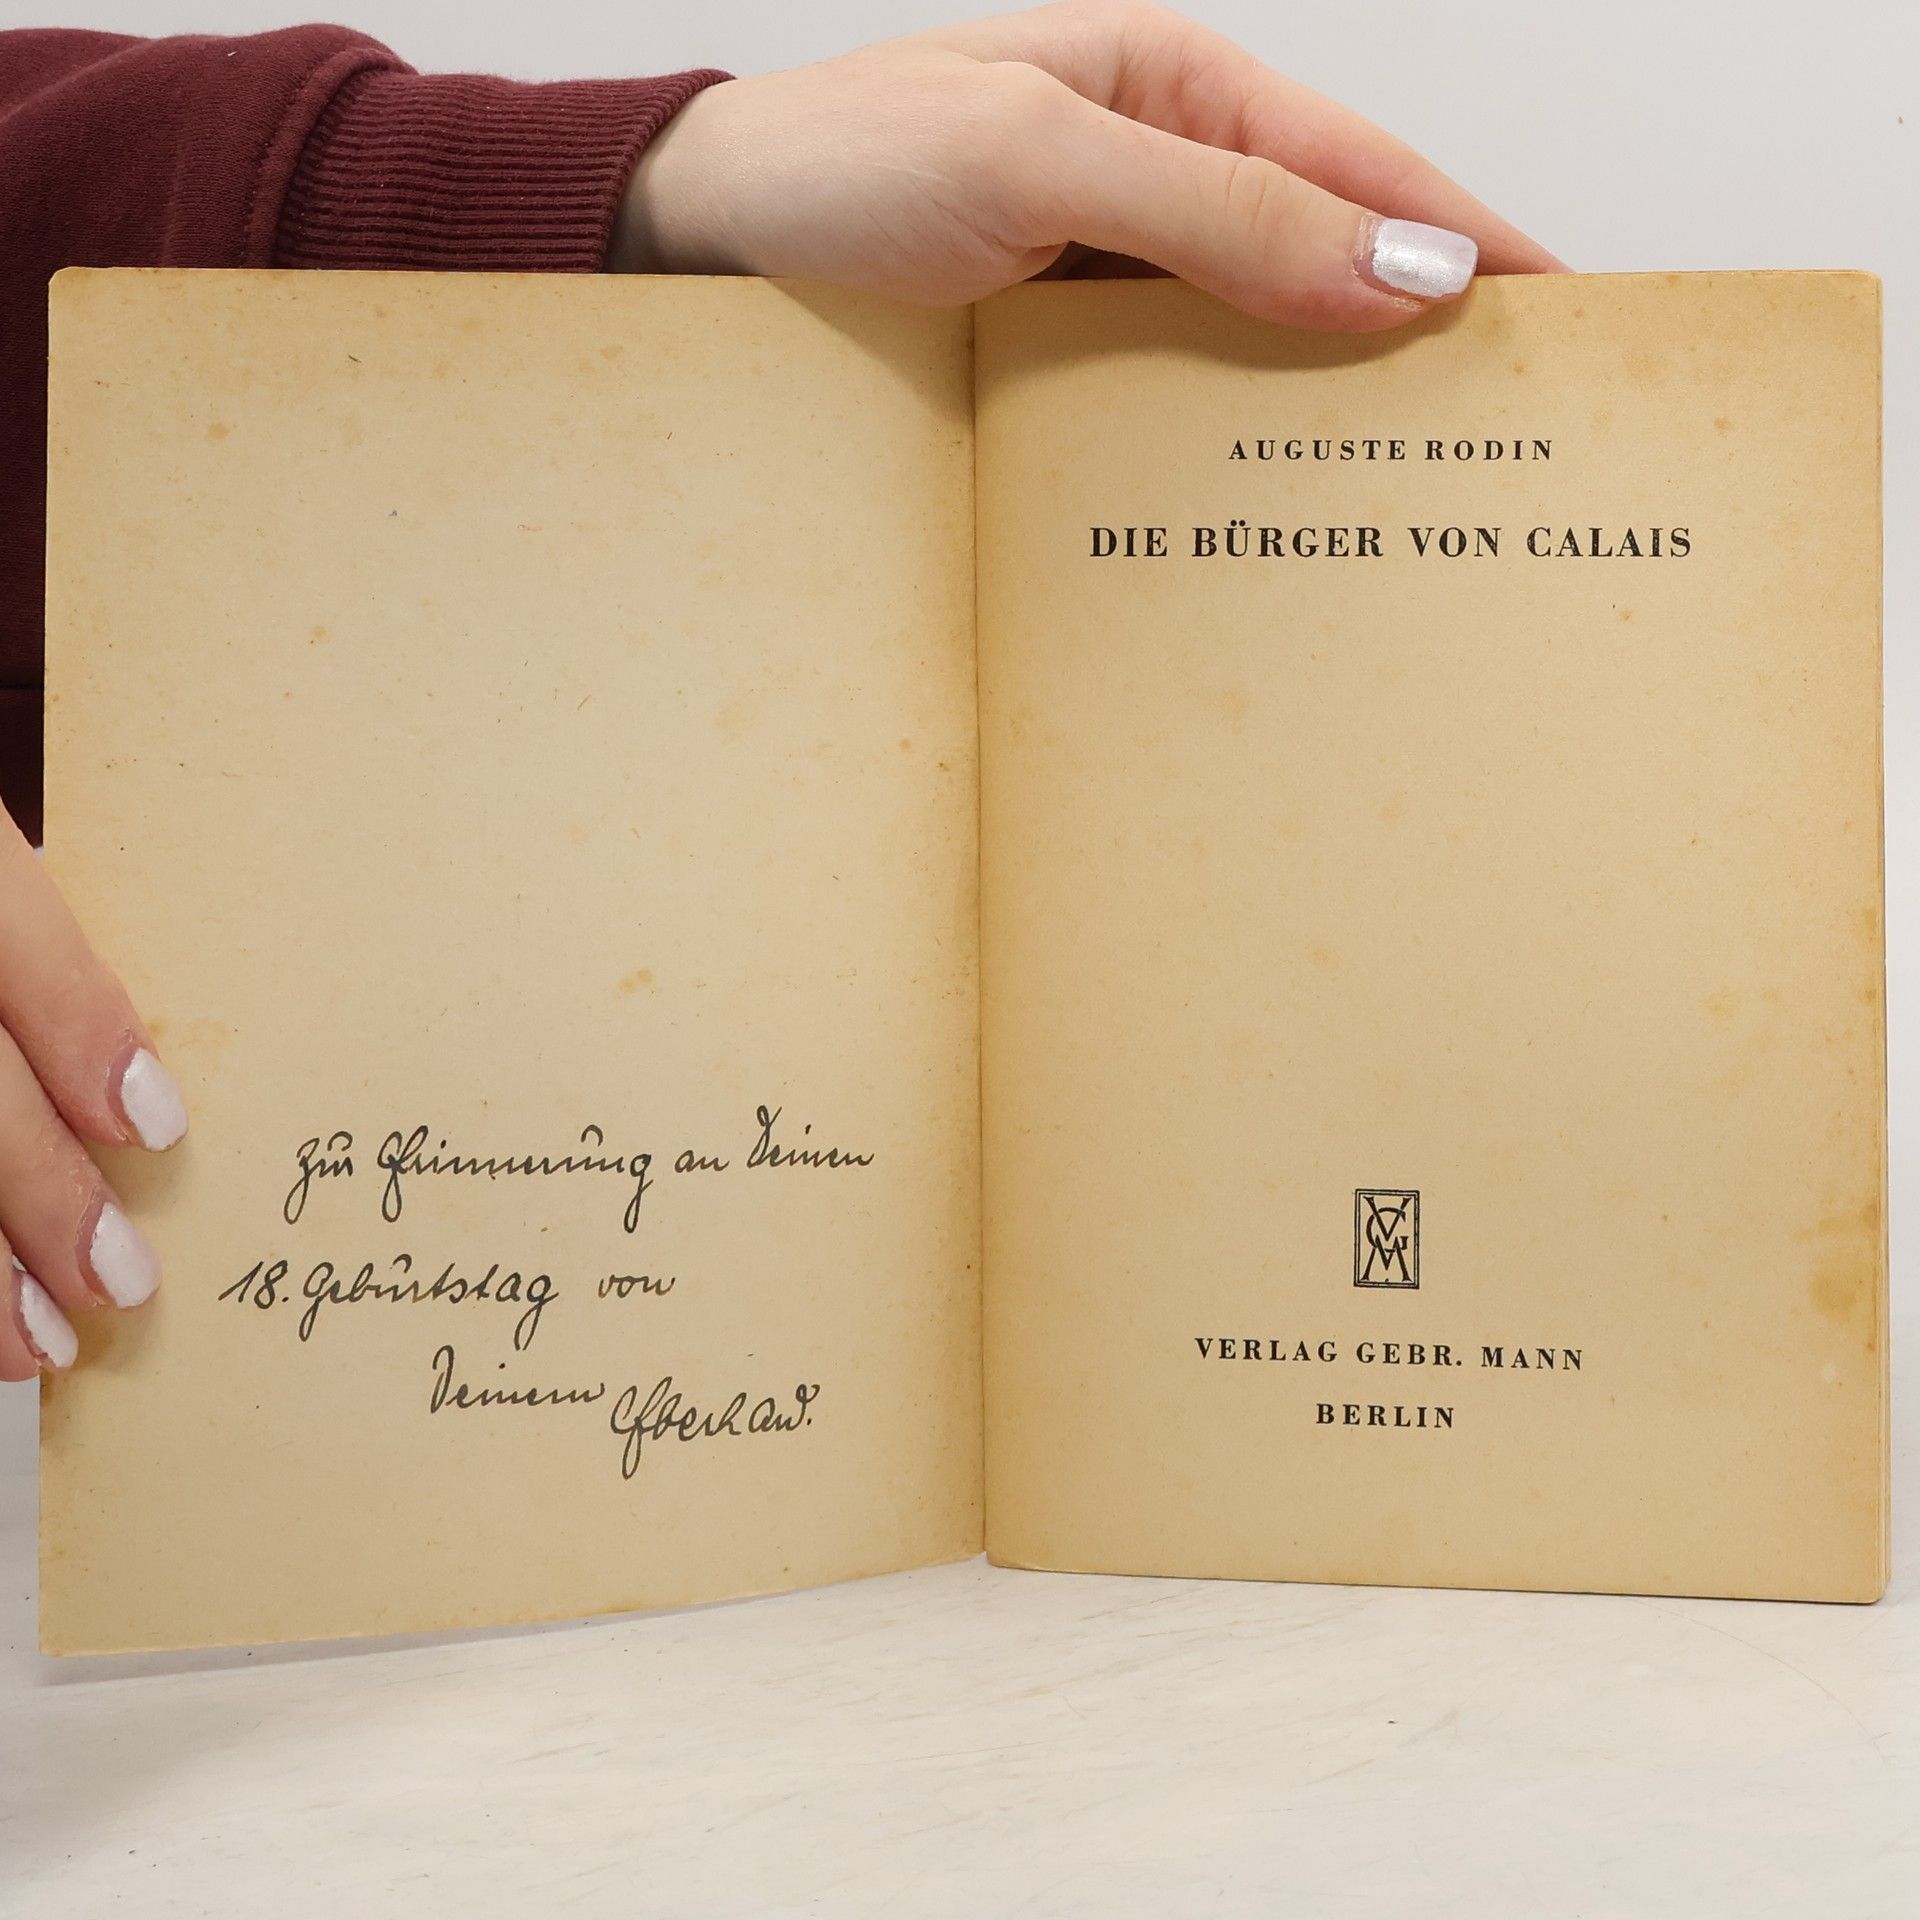 Zur Erinnerung an Deinen
18. Geburtstag von
Deinem Eberhard.
AUGUSTE RODIN
DIE BÜRGER VON CALAIS
VERLAG GEBR. MANN
BERLIN